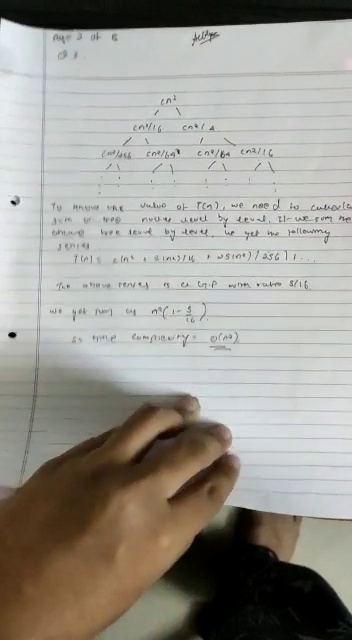 Page 2 of 8
Q3.
cn²
cn²/16 cn²/4
cn²/256 cn²/64 cn²/64 cn²/16
To know the value of T(n), we need to calculate
sum of tree nodes level by level. If we sum the
above tree level by level, we get the following
series
T(n) = c(n² + 5(n²)/16 + 25(n²)/256) + ...
The above series is a G.P with ratio 5/16.
we get sum as n²(1 - 5/16).
So time complexity = O(n²)